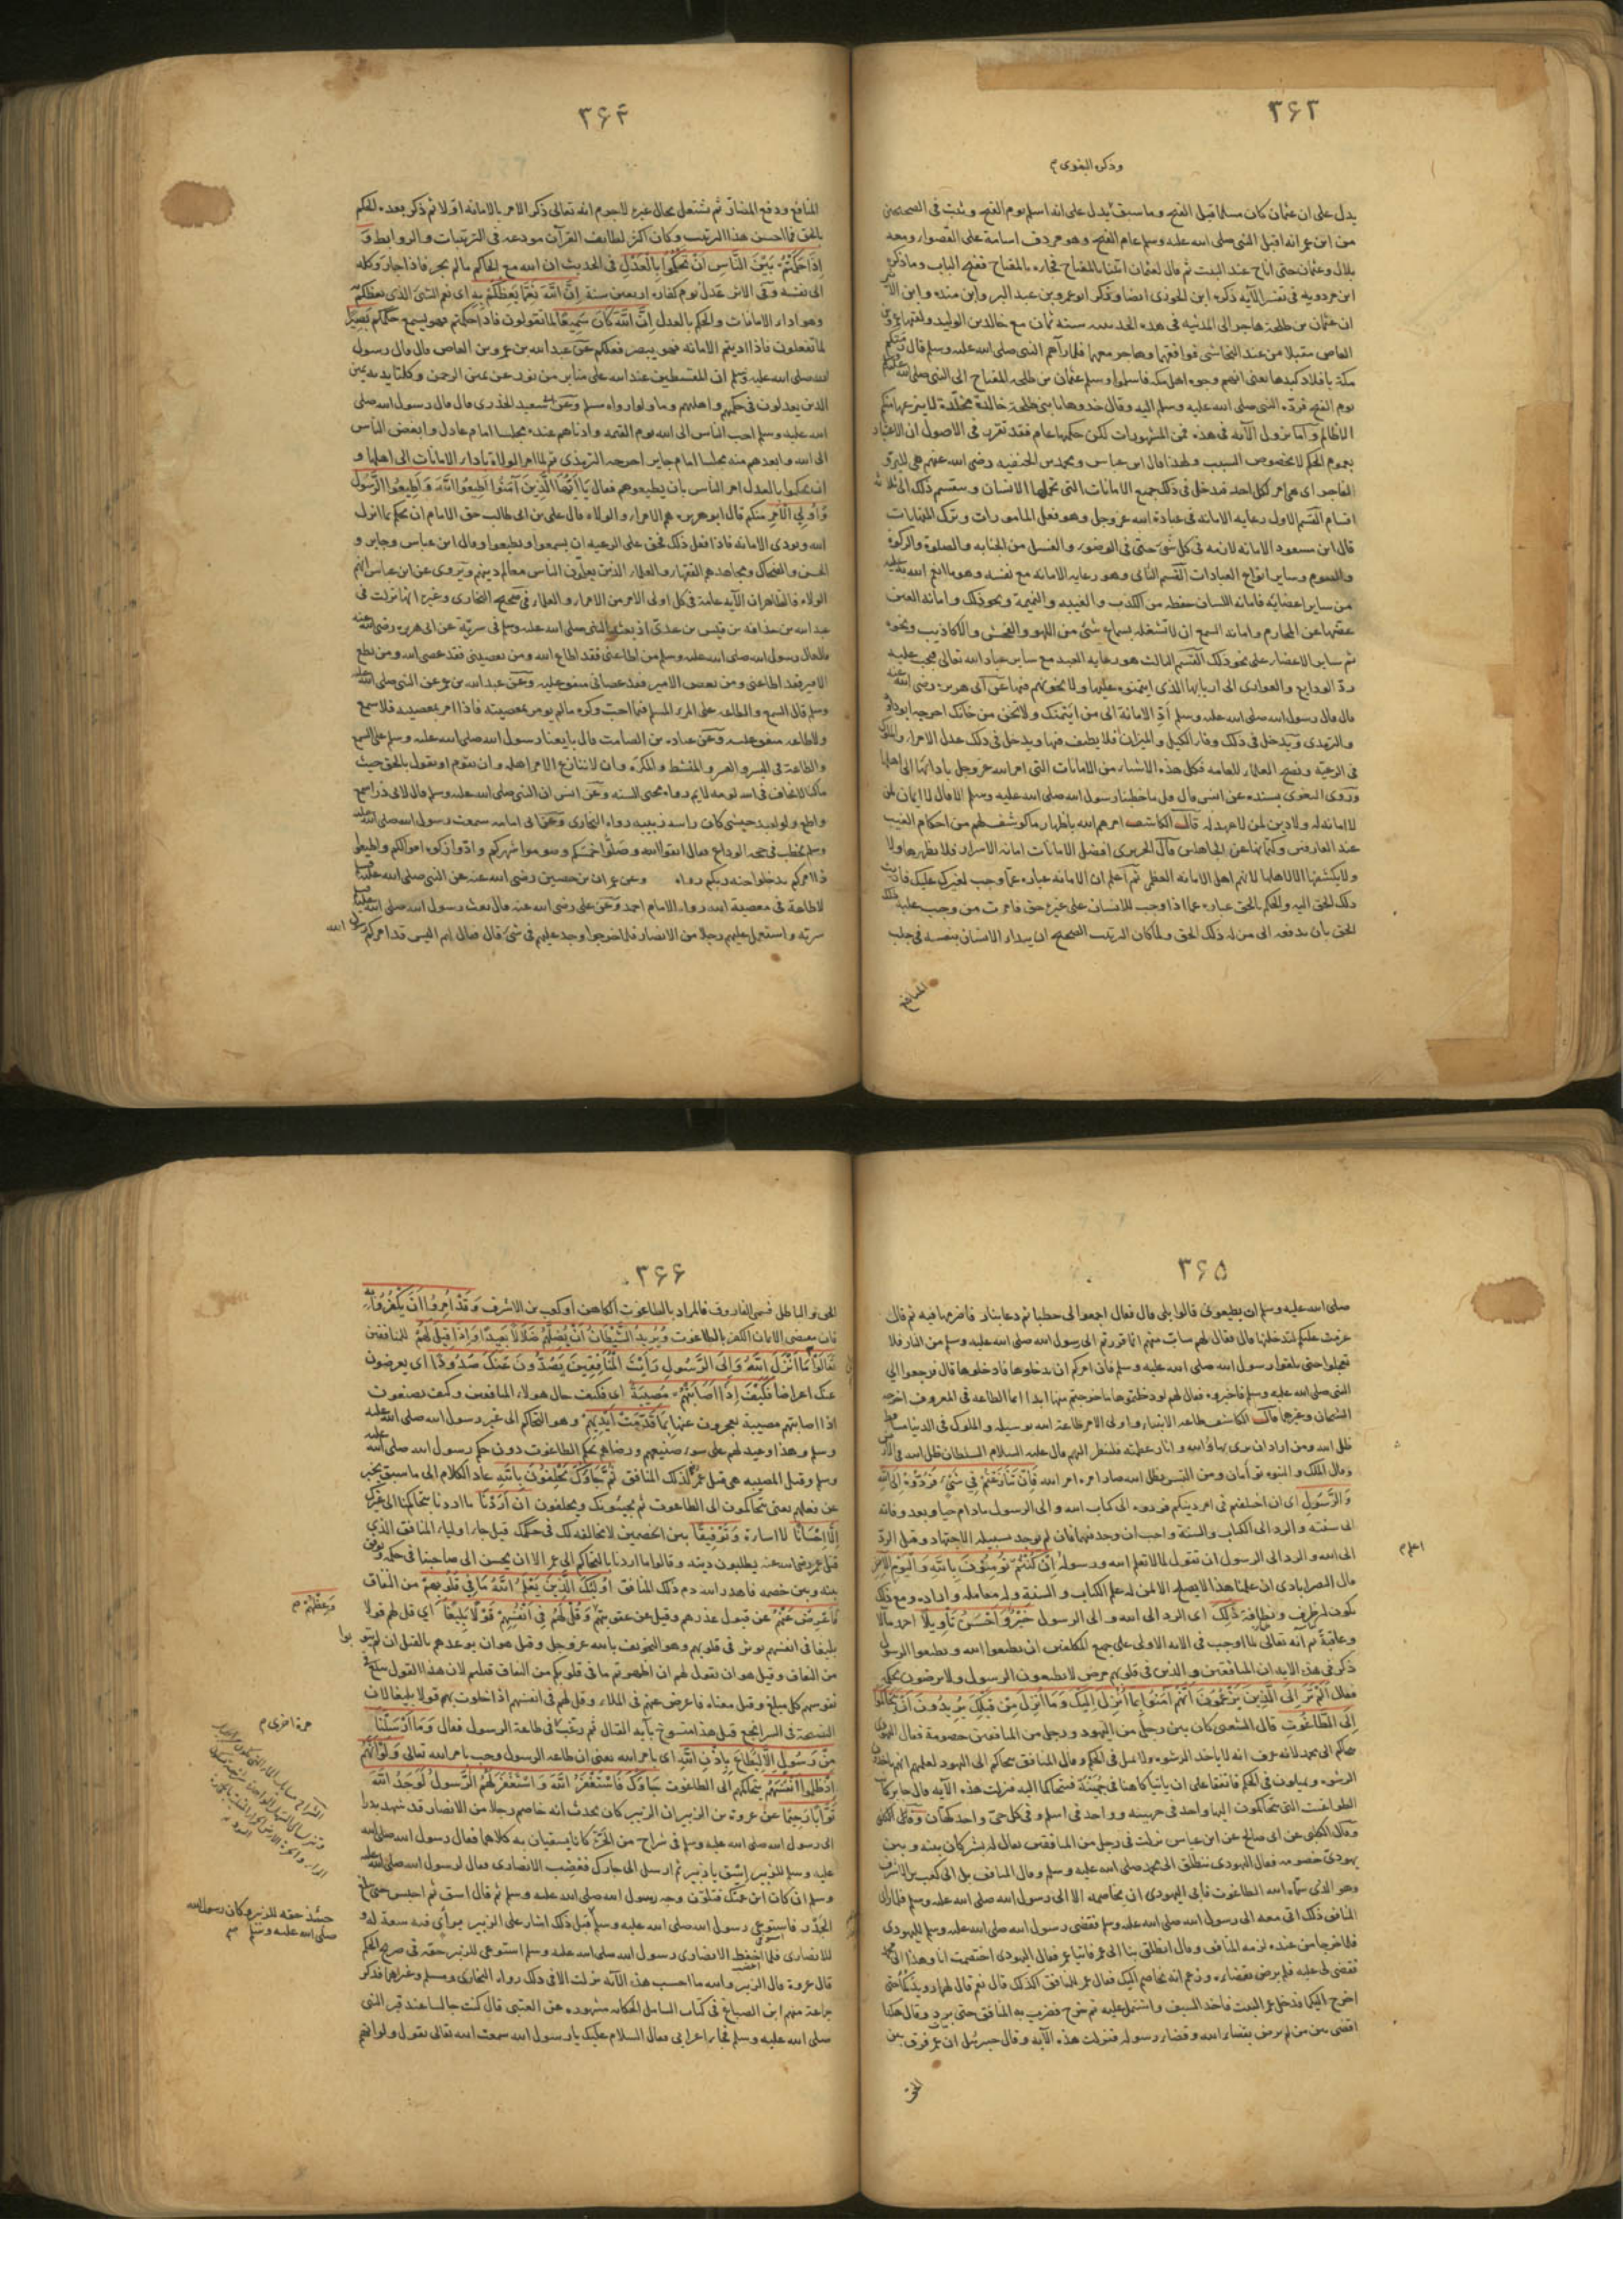 ۳۶۳
وذكره البغوى م
يدل على ان عثمان كان مسلما قبل الفتح وما سبق يدل على انه اسلم يوم الفتح وثبت فى الصحيحين
من ابن عمر انه اقبل النبى صلى الله عليه وسلم عام الفتح وهو مردف اسامة على القصواء ومعه
بلال وعثمان حتى اناخ عند البيت ثم قال لعثمان ائتنا بالمفتاح فجاءه بالمفتاح ففتح الباب وما ذكره
ابن مردويه فى تفسير الآية ذكره ابن الجوزى ايضا وذكر ابو عمرو بن عبد البر وابن منده وابن الاثير
ان عثمان بن طلحة هاجر الى المدينه فى هدنه الحديبيه سنة ثمان مع خالد بن الوليد ولقيا عمرو بن
العاص مقبلا من عند النجاشى فوافقهما وهاجر معهما فلما رآهم النبى صلى الله عليه وسلم قال رمتكم
مكة بافلاذ كبدها يعنى انهم وجوه اهل مكه فاسلموا وسلم عثمان بن طلحه المفتاح الى النبى صلى الله عليه وسلم
يوم الفتح فردّه النبى صلى الله عليه وسلم اليه وقال خذوها يا بنى طلحة خالدة مخلّدة لا ينزعها منكم
الا ظالم واما نزول الآية فى هذه فمن المشهورات لكن حكمها عام فقد تقرر فى الاصول ان الاعتبار
بعموم الحكم لا بخصوص السبب ولهذا قال ابن عباس ومحمد بن الحنفيه رضى الله عنهم هى للبرّ و
الفاجر اى هى امر لكل احد فدخل فى ذلك جميع الامانات التى تحملها الانسان وينقسم ذلك الى ثلاثة
اقسام القسم الاول رعاية الامانه فى عبادة الله عز وجل وهو فعل المامورات وترك المنهيات
قال ابن مسعود الامانه لازمه فى كل شئ حتى فى الوضوء والغسل من الجنابه والصلوة والزكوة
والصوم وساير انواع العبادات القسم الثانى وهو رعاية الامانه مع نفسه وهو ما انعم الله به عليه
من ساير اعضايه فامانه اللسان حفظه من الكذب والغيبه والنميمة ونحو ذلك وامانة العين
غضها عن المحارم وامانه السمع ان لا تشغله بسماع شئ من اللهو والفحش والاكاذيب ونحوه
ثم ساير الاعضاء على نحو ذلك القسم الثالث هو رعايه العبد مع ساير عباد الله تعالى فيجب عليه
ردّ الودايع والعوارى الى اربابها الذى ايتمنوه عليها ولا يخونهم فيها عن ابى هريره رضى الله عنه
قال قال رسول الله صلى الله عليه وسلم أدّ الامانة الى من ايتمنك ولا تخن من خانك اخرجه ابو داود
والترمذى ويدخل فى ذلك وفاء الكيل والميزان فلا يطفف فيها ويدخل فى ذلك عدل الامراء والملوك
فى الرعيّة ونصح العلماء للعامه فكل هذه الاشياء من الامانات التى امر الله عز وجل بادائها الى اهلها
وروى البغوى بسنده عن انس قال قل ما خطبنا رسول الله صلى الله عليه وسلم الا قال لا ايمان لمن
لا امانة له ولا دين لمن لا عهد له قال الكاشف امرهم الله باظهار ما كوشف لهم من احكام الغيب
عند العارفين وكتمانها عن الجاهلين قال الجريرى افضل الامانات امانة الاسرار فلا يظهرها ولا
ولا يكشفها الا لاهلها لانهم اهل الامانه العظمى ثم اعلم ان الامانه عباره عما وجب لغيرك عليك فاديت
ذلك الحق اليه والحكم بالحق عباره عما اذا وجب للانسان على غيره حق فامرت من وجب عليه ذلك
الحق بان يدفعه الى من له ذلك الحق ولما كان الترتيب الصحيح ان يبداء الانسان بنفسه فى جلب
المنافع
۳۶۴
المنافع ودفع المضارّ ثم يشتغل بحال غيره لاجرم انه تعالى ذكر الامر بالامانه اولا ثم ذكر بعده الحكم
بالحق فما احسن هذا الترتيب وكان اكثر لطايف القرآن مودعه فى الترتيبات والروابط وَ
إِذَا حَكَمْتُمْ بَيْنَ النَّاسِ أَنْ تَحْكُمُوا بِالْعَدْلِ فى الحديث ان الله مع الحاكم ما لم يجر فاذا جار وكله
الى نفسه وفى الاثر عدل يوم كفارة اربعين سنة إِنَّ اللَّهَ نِعِمَّا يَعِظُكُمْ بِهِ اى نعم الشئ الذى يعظكم
وهو اداء الامانات والحكم بالعدل إِنَّ اللَّهَ كَانَ سَمِيعًا لما تقولون فاذا حكمتم فهو يسمع حكمكم بَصِيرًا
لما تفعلون فاذا اديتم الامانه فهو يبصر فعلكم عن عبد الله بن عمرو بن العاص قال قال رسول
الله صلى الله عليه وسلم ان المقسطين عند الله على منابر من نور عن يمين الرحمن وكلتا يديه يمين
الذين يعدلون فى حكمهم واهليهم وما ولوا رواه مسلم وعن ابى سعيد الخدرى قال قال رسول الله صلى
الله عليه وسلم احب الناس الى الله يوم القيمه وادناهم عنده مجلسا امام عادل وابغض الناس
الى الله وابعدهم منه مجلسا امام جاير اخرجه الترمذى ثم لما امر الولاة باداء الامانات الى اهلها و
ان يحكموا بالعدل امر الناس بان يطيعوهم فقال يَا أَيُّهَا الَّذِينَ آمَنُوا أَطِيعُوا اللَّهَ وَأَطِيعُوا الرَّسُولَ
وَأُولِي الْأَمْرِ مِنْكُمْ قال ابو هريره هم الامراء والولاه قال على بن ابى طالب حق الامام ان يحكم بما انزل
الله ويودى الامانه فاذا فعل ذلك فحق على الرعيه ان يسمعوا ويطيعوا وقال ابن عباس وجابر و
الحسن والضحاك ومجاهد هم الفقهاء والعلماء الذين يعلّمون الناس معالم دينهم ويروى عن ابن عباس انهم
الولاه فالظاهر ان الآيه عامة فى كل اولى الامر من الامراء والعلماء فى صحيح البخارى وغيره انها نزلت فى
عبد الله بن حذافه بن قيس بن عدىّ اذ بعثه النبى صلى الله عليه وسلم فى سريّة عن ابى هريره رضى الله عنه
قال قال رسول الله صلى الله عليه وسلم من اطاعنى فقد اطاع الله ومن يعصينى فقد عصى الله ومن يطع
الامير فقد اطاعنى ومن يعص الامير فقد عصانى متفق عليه وعن عبد الله بن عمر عن النبى صلى الله عليه
وسلم قال السمع والطاعه على المرء المسلم فيما احب وكره ما لم يومر بمعصيته فاذا امر بمعصيه فلا سمع
ولا طاعه متفق عليه وعن عباده بن الصامت قال بايعنا رسول الله صلى الله عليه وسلم على السمع
والطاعة فى اليسر والعسر والمنشط والمكره وان لا ننازع الامر اهله وان نقوم او نقول بالحق حيث
ما كنا لا نخاف فى الله لومه لايم رواه محيى السنه وعن انس ان النبى صلى الله عليه وسلم قال لابى ذر اسمع
واطع ولو لعبد حبشى كان راسه زبيبه رواه البخارى وعن ابى امامه سمعت رسول الله صلى الله عليه
وسلم يخطب فى حجه الوداع فقال اتقوا الله وصلّوا خمسكم وصوموا شهركم وادّوا زكوة اموالكم واطيعوا
ذا امركم تدخلوا جنه ربكم رواه وعن عمران بن حصين رضى الله عنه عن النبى صلى الله عليه وسلم
لا طاعة فى معصية الله رواه الامام احمد وعن على رضى الله عنه قال بعث رسول الله صلى الله عليه وسلم
سريّه واستعمل عليهم رجلا من الانصار فلما خرجوا وجد عليهم فى شئ قال فقال لهم اليس قد امركم رسول الله
۳۶۵
صلى الله عليه وسلم ان تطيعونى قالوا بلى قال فقال اجمعوا لى حطبا ثم دعا بنار فاضرمها فيه ثم قال
عزمت عليكم لتدخلنها قال فقال لهم شاب منهم انما فررتم الى رسول الله صلى الله عليه وسلم من النار فلا
تعجلوا حتى تلقوا رسول الله صلى الله عليه وسلم فان امركم ان تدخلوها فادخلوها قال فرجعوا الى
النبى صلى الله عليه وسلم فاخبروه فقال لهم لو دخلتموها ما خرجتم منها ابدا انما الطاعه فى المعروف اخرجه
الشيخان وغيرهما قال الكاشف طاعه الانبياء واولى الامر طاعة الله بوسيله والملوك فى الدنيا
ظل الله ومن اراد ان يرى بهاء الله وآثار عظمته فلينظر اليهم قال عليه السلام السلطان ظل الله فى الارض
وقال الملك والنبوه توأمان ومن التبس بظل الله صار امره امر الله فَإِنْ تَنَازَعْتُمْ فِي شَيْءٍ فَرُدُّوهُ إِلَى اللَّهِ
وَالرَّسُولِ اى ان اختلفتم فى امر دينكم فردوه الى كتاب الله والى الرسول ما دام حيا وبعد وفاته
الى سنته والرد الى الكتاب والسنة واجب ان وجد فيهما فان لم يوجد فسبيله الاجتهاد وقيل الردّ
الى الله والرد الى الرسول ان تقول لما لا تعلم الله ورسوله إِنْ كُنْتُمْ تُؤْمِنُونَ بِاللَّهِ وَالْيَوْمِ الْآخِرِ
اعلم م
قال النصراباذى ان علمنا هذا لا يصلح الا لمن له علم الكتاب والسنة وله معامله واراده ومع ذلك
يكون له ظرف ونظافة ذَلِكَ اى الرد الى الله والى الرسول خَيْرٌ وَأَحْسَنُ تَأْوِيلًا احمد مآلا
وعاقبةً ثم انه تعالى لما اوجب فى الآيه الاولى على جميع المكلفين ان يطيعوا الله ويطيعوا الرسول
ذكر فى هذه الايه ان المنافقين والذين فى قلوبهم مرض لا يطيعون الرسول ولا يرضون بحكمه
فقال أَلَمْ تَرَ إِلَى الَّذِينَ يَزْعُمُونَ أَنَّهُمْ آمَنُوا بِمَا أُنْزِلَ إِلَيْكَ وَمَا أُنْزِلَ مِنْ قَبْلِكَ يُرِيدُونَ أَنْ يَتَحَاكَمُوا
إِلَى الطَّاغُوتِ قال الشعبى كان بين رجل من اليهود ورجل من المنافقين خصومة فقال اليهودى
نتحاكم الى محمد لانه عرف انه لا ياخذ الرشوه ولا يميل فى الحكم وقال المنافق نتحاكم الى اليهود لعلمه انهم ياخذون
الرشوه ويميلون فى الحكم فاتفقا على ان ياتيا كاهنا فى جُهَيْنَة فتحاكما اليه فنزلت هذه الآيه قال جابر كانت
الطواغيت التى يتحاكمون اليها واحد فى جهينه وواحد فى اسلم وفى كل حىّ واحد كهّان
وقال الكلبى عن ابى صالح عن ابن عباس نزلت فى رجل من المنافقين يقال له بشر كان بينه وبين
يهودىّ خصومه فقال اليهودى ننطلق الى محمد صلى الله عليه وسلم وقال المنافق بل الى كعب بن الاشرف
وهو الذى سمّاه الله الطاغوت فابى اليهودى ان يخاصمه الا الى رسول الله صلى الله عليه وسلم فلما راى
المنافق ذلك اتى معه الى رسول الله صلى الله عليه وسلم فقضى رسول الله صلى الله عليه وسلم لليهودى
فلما خرجا من عنده لزمه المنافق وقال انطلق بنا الى عمر فاتيا عمر فقال اليهودى اختصمت انا وهذا الى محمد
فقضى لى عليه فلم يرض بقضائه وزعم انه يخاصم اليك فقال عمر للمنافق اكذلك قال نعم قال لهما رويدكما حتى
اخرج اليكما فدخل عمر البيت فاخذ السيف واشتمل عليه ثم خرج فضرب به المنافق حتى برد وقال هكذا
اقضى بين من لم يرض بقضاء الله وقضاء رسوله فنزلت هذه الآيه وقال جبرئيل ان عمر فرق بين
الحق
۳۶۶
الحق والباطل فسمى الفاروق فالمراد بالطاغوت الكاهن او كعب بن الاشرف وَقَدْ أُمِرُوا أَنْ يَكْفُرُوا بِهِ
فان مقتضى الايمان الكفر بالطاغوت وَيُرِيدُ الشَّيْطَانُ أَنْ يُضِلَّهُمْ ضَلَالًا بَعِيدًا وَإِذَا قِيلَ لَهُمْ للمنافقين
تَعَالَوْا إِلَى مَا أَنْزَلَ اللَّهُ وَإِلَى الرَّسُولِ رَأَيْتَ الْمُنَافِقِينَ يَصُدُّونَ عَنْكَ صُدُودًا اى يعرضون
عنك اعراضا فَكَيْفَ إِذَا أَصَابَتْهُمْ مُصِيبَةٌ اى فكيف حال هؤلاء المنافقين وكيف يصنعون
اذا اصابتهم مصيبة يعجزون عنها بِمَا قَدَّمَتْ أَيْدِيهِمْ وهو التحاكم الى غير رسول الله صلى الله عليه
وسلم وهذا وعيد لهم على سوء صنيعهم ورضاهم بحكم الطاغوت دون حكم رسول الله صلى الله عليه
وسلم وقيل المصيبه هى قتل عمر لذلك المنافق ثُمَّ جَاءُوكَ يَحْلِفُونَ بِاللَّهِ عاد الكلام الى ما سبق يخبر
عن فعلهم يعنى يتحاكمون الى الطاغوت ثم يجيئونك ويحلفون إِنْ أَرَدْنَا ما اردنا بتحاكمنا الى غيرك
إِلَّا إِحْسَانًا لا اساءة وَتَوْفِيقًا بين الخصمين لا مخالفه لك فى حكمك قيل جاء اولياء المنافق الذى
قتل عمر رضى الله عنه يطلبون ديته وقالوا ما اردنا بالتحاكم الى عمر الا ان يحسن الى صاحبنا فى حكمه ويوفق
بينه وبين خصمه فاهدر الله دم ذلك المنافق أُولَئِكَ الَّذِينَ يَعْلَمُ اللَّهُ مَا فِي قُلُوبِهِمْ من النفاق
فَأَعْرِضْ عَنْهُمْ عن قبول عذرهم وقيل عن عقوبتهم وَقُلْ لَهُمْ فِي أَنْفُسِهِمْ قَوْلًا بَلِيغًا اى قل لهم قولا
وَعِظْهُمْ م
بليغا فى انفسهم يوثر فى قلوبهم وهو التخويف بالله عز وجل وقيل هو ان يوعدهم بالقتل ان لم يتوبوا
من النفاق وقيل هو ان يقول لهم ان اظهرتم ما فى قلوبكم من النفاق قتلتم لان هذا القول يبلغ فى
نفوسهم كل مبلغ وقيل معناه فاعرض عنهم فى الملاء وقل لهم فى انفسهم اذا خلوت بهم قولا بليغا لان
النصيحة فى السر انجع قيل هذا منسوخ بآية القتال ثم رغّب فى طاعة الرسول فقال وَمَا أَرْسَلْنَا
مِنْ رَسُولٍ إِلَّا لِيُطَاعَ بِإِذْنِ اللَّهِ اى بامر الله يعنى ان طاعه الرسول وجب بامر الله تعالى وَلَوْ أَنَّهُمْ
إِذْ ظَلَمُوا أَنْفُسَهُمْ بتحاكمهم الى الطاغوت جَاءُوكَ فَاسْتَغْفَرُوا اللَّهَ وَاسْتَغْفَرَ لَهُمُ الرَّسُولُ لَوَجَدُوا اللَّهَ
تَوَّابًا رَحِيمًا عن عروة بن الزبير ان الزبير كان يحدث انه خاصم رجلا من الانصار قد شهد بدرا
الى رسول الله صلى الله عليه وسلم فى شراج من الحَرّة كانا يسقيان به كلاهما فقال رسول الله صلى الله
عليه وسلم للزبير إسْق يا زبير ثم ارسل الى جارك فغضب الانصارى فقال لرسول الله صلى الله عليه
وسلم ان كان ابن عمتك فتلوّن وجه رسول الله صلى الله عليه وسلم ثم قال اسق ثم احبس حتى يبلغ
الجَدْر فاستوعى رسول الله صلى الله عليه وسلم قبل ذلك اشار على الزبير برأى فيه سعة له و
حينئذ حقه للزبير وكان رسول الله
صلى الله عليه وسلم صح
للانصارى فلما احفظ الانصارى رسول الله صلى الله عليه وسلم استوعى للزبير حقه فى صريح الحكم
قال عروة قال الزبير والله ما احسب هذه الآيه نزلت الا فى ذلك رواه البخارى ومسلم وغيرهما فذكر
جماعة منهم ابن الصباغ فى كتاب الشامل الحكايه مشهوره عن العتبى قال كنت جالسا عند قبر النبى
صلى الله عليه وسلم فجاء اعرابى فقال السلام عليك يا رسول الله سمعت الله تعالى يقول ولو انهم